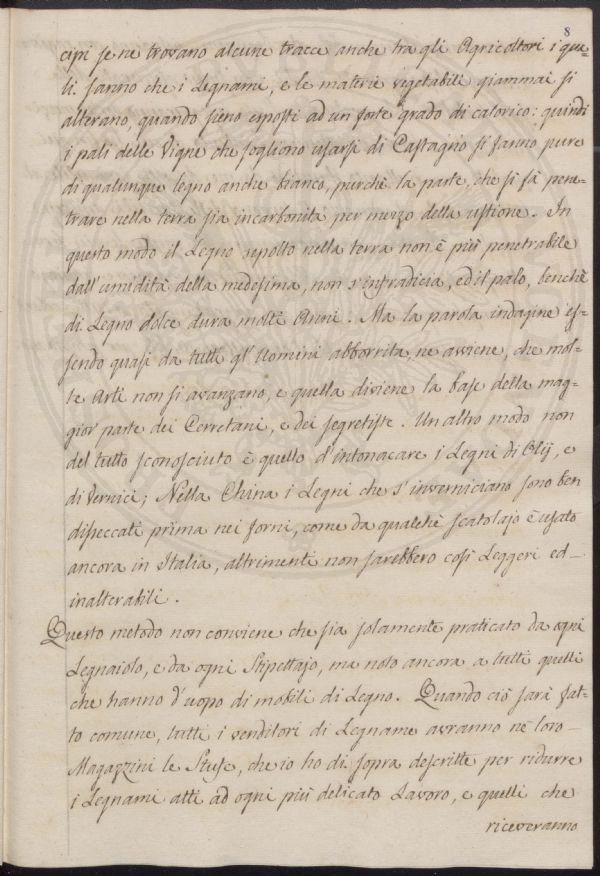 8
cipi se ne trovano alcune tracce anche tra gli Agricoltori i qua=
li sanno che i Legnami, e le materie vegetabili giammai si
alterano, quando sieno esposti ad un forte grado di calorico: quindi
i pali delle Vigne che sogliono usarsi di Castagno si fanno pure
di qualunque legno anche bianco, purchè la parte, che si fà pene=
trare nella terra sia incarbonita per mezzo della ustione. In
questo modo il Legno sepolto nella terra non è più penetrabile
dall'umidità della medesima, non s'infradicia, ed il palo, benchè
di Legno dolce dura molti Anni. Ma la parola indagine es=
sendo quasi da tutti gl'Uomini abborrita, ne avviene, che mol=
te Arti non si avanzano, e quella diviene la base della mag=
gior parte dei Cerretani, e dei segretiste. Un altro modo non
del tutto sconosciuto è quello d'intonacare i Legni di Olij, e
di Vernici; Nella China i Legni che s'inverniciano sono ben
diseccati prima nei forni, come da qualche scatolajo è usato
ancora in Italia, altrimenti non sarebbero così Leggeri ed=
inalterabili.
Questo metodo non conviene che sia solamente praticato da ogni
Legnaiolo, e da ogni Stipettajo, ma noto ancora a tutti quelli
che hanno d'uopo di mobili di Legno. Quando ciò sarà fat=
to comune, tutti i venditori di Legname avranno ne loro=
Magazzini le Stufe, che io ho di sopra descritte per ridurre
i Legnami atti ad ogni più delicato Lavoro, e quelli che
riceveranno